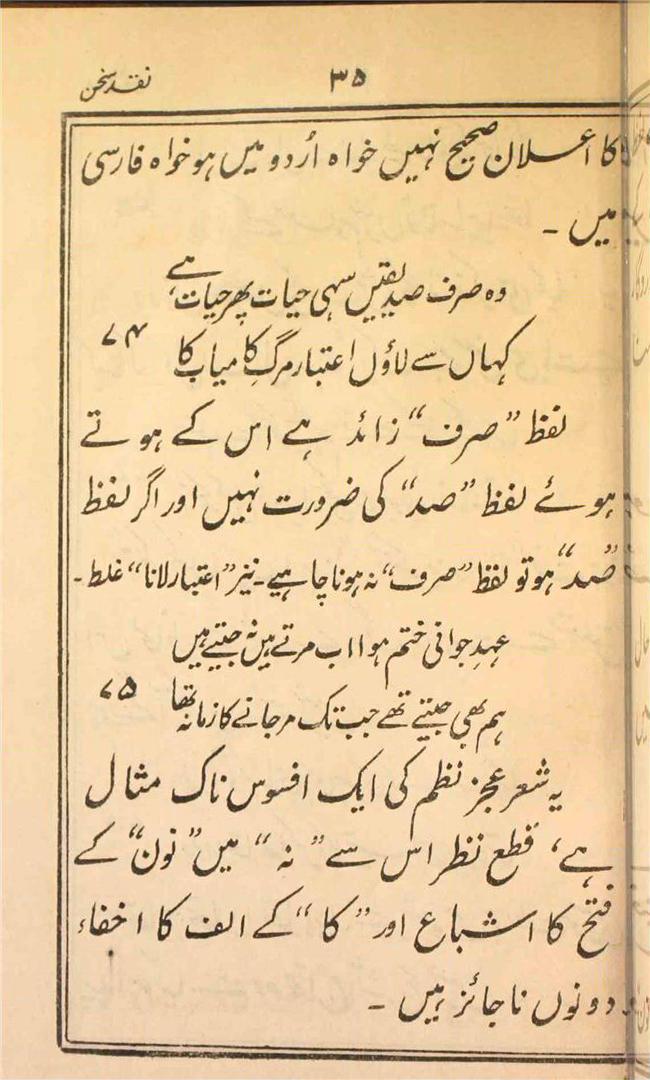 نقد سخن
۳۵
کا اعلان صحیح نہیں خواہ اُردو میں ہو خواہ فارسی
میں ۔
وہ صرف صد یقیں سہی حیات پھر حیات ہے
کہاں سے لاؤں اعتبار مرگِ کامیاب کا ۷۴
لفظ ”صرف“ زائد ہے اس کے ہوتے
ہوئے لفظ ”صد“ کی ضرورت نہیں اور اگر لفظ
”صد“ ہو تو لفظ ”صرف“ نہ ہونا چاہیے۔ نیز ”اعتبار لانا“ غلط۔
عہدِ جوانی ختم ہوا اب مرتے ہیں نہ جیتے ہیں
ہم بھی جیتے تھے جب تک مر جانے کا زمانہ تھا ۷۵
یہ شعر عجز نظم کی ایک افسوس ناک مثال
ہے، قطع نظر اس سے ”نہ“ میں ”نون“ کے
فتح کا اشباع اور ”کا“ کے الف کا اخفاء
دونوں ناجائز ہیں ۔